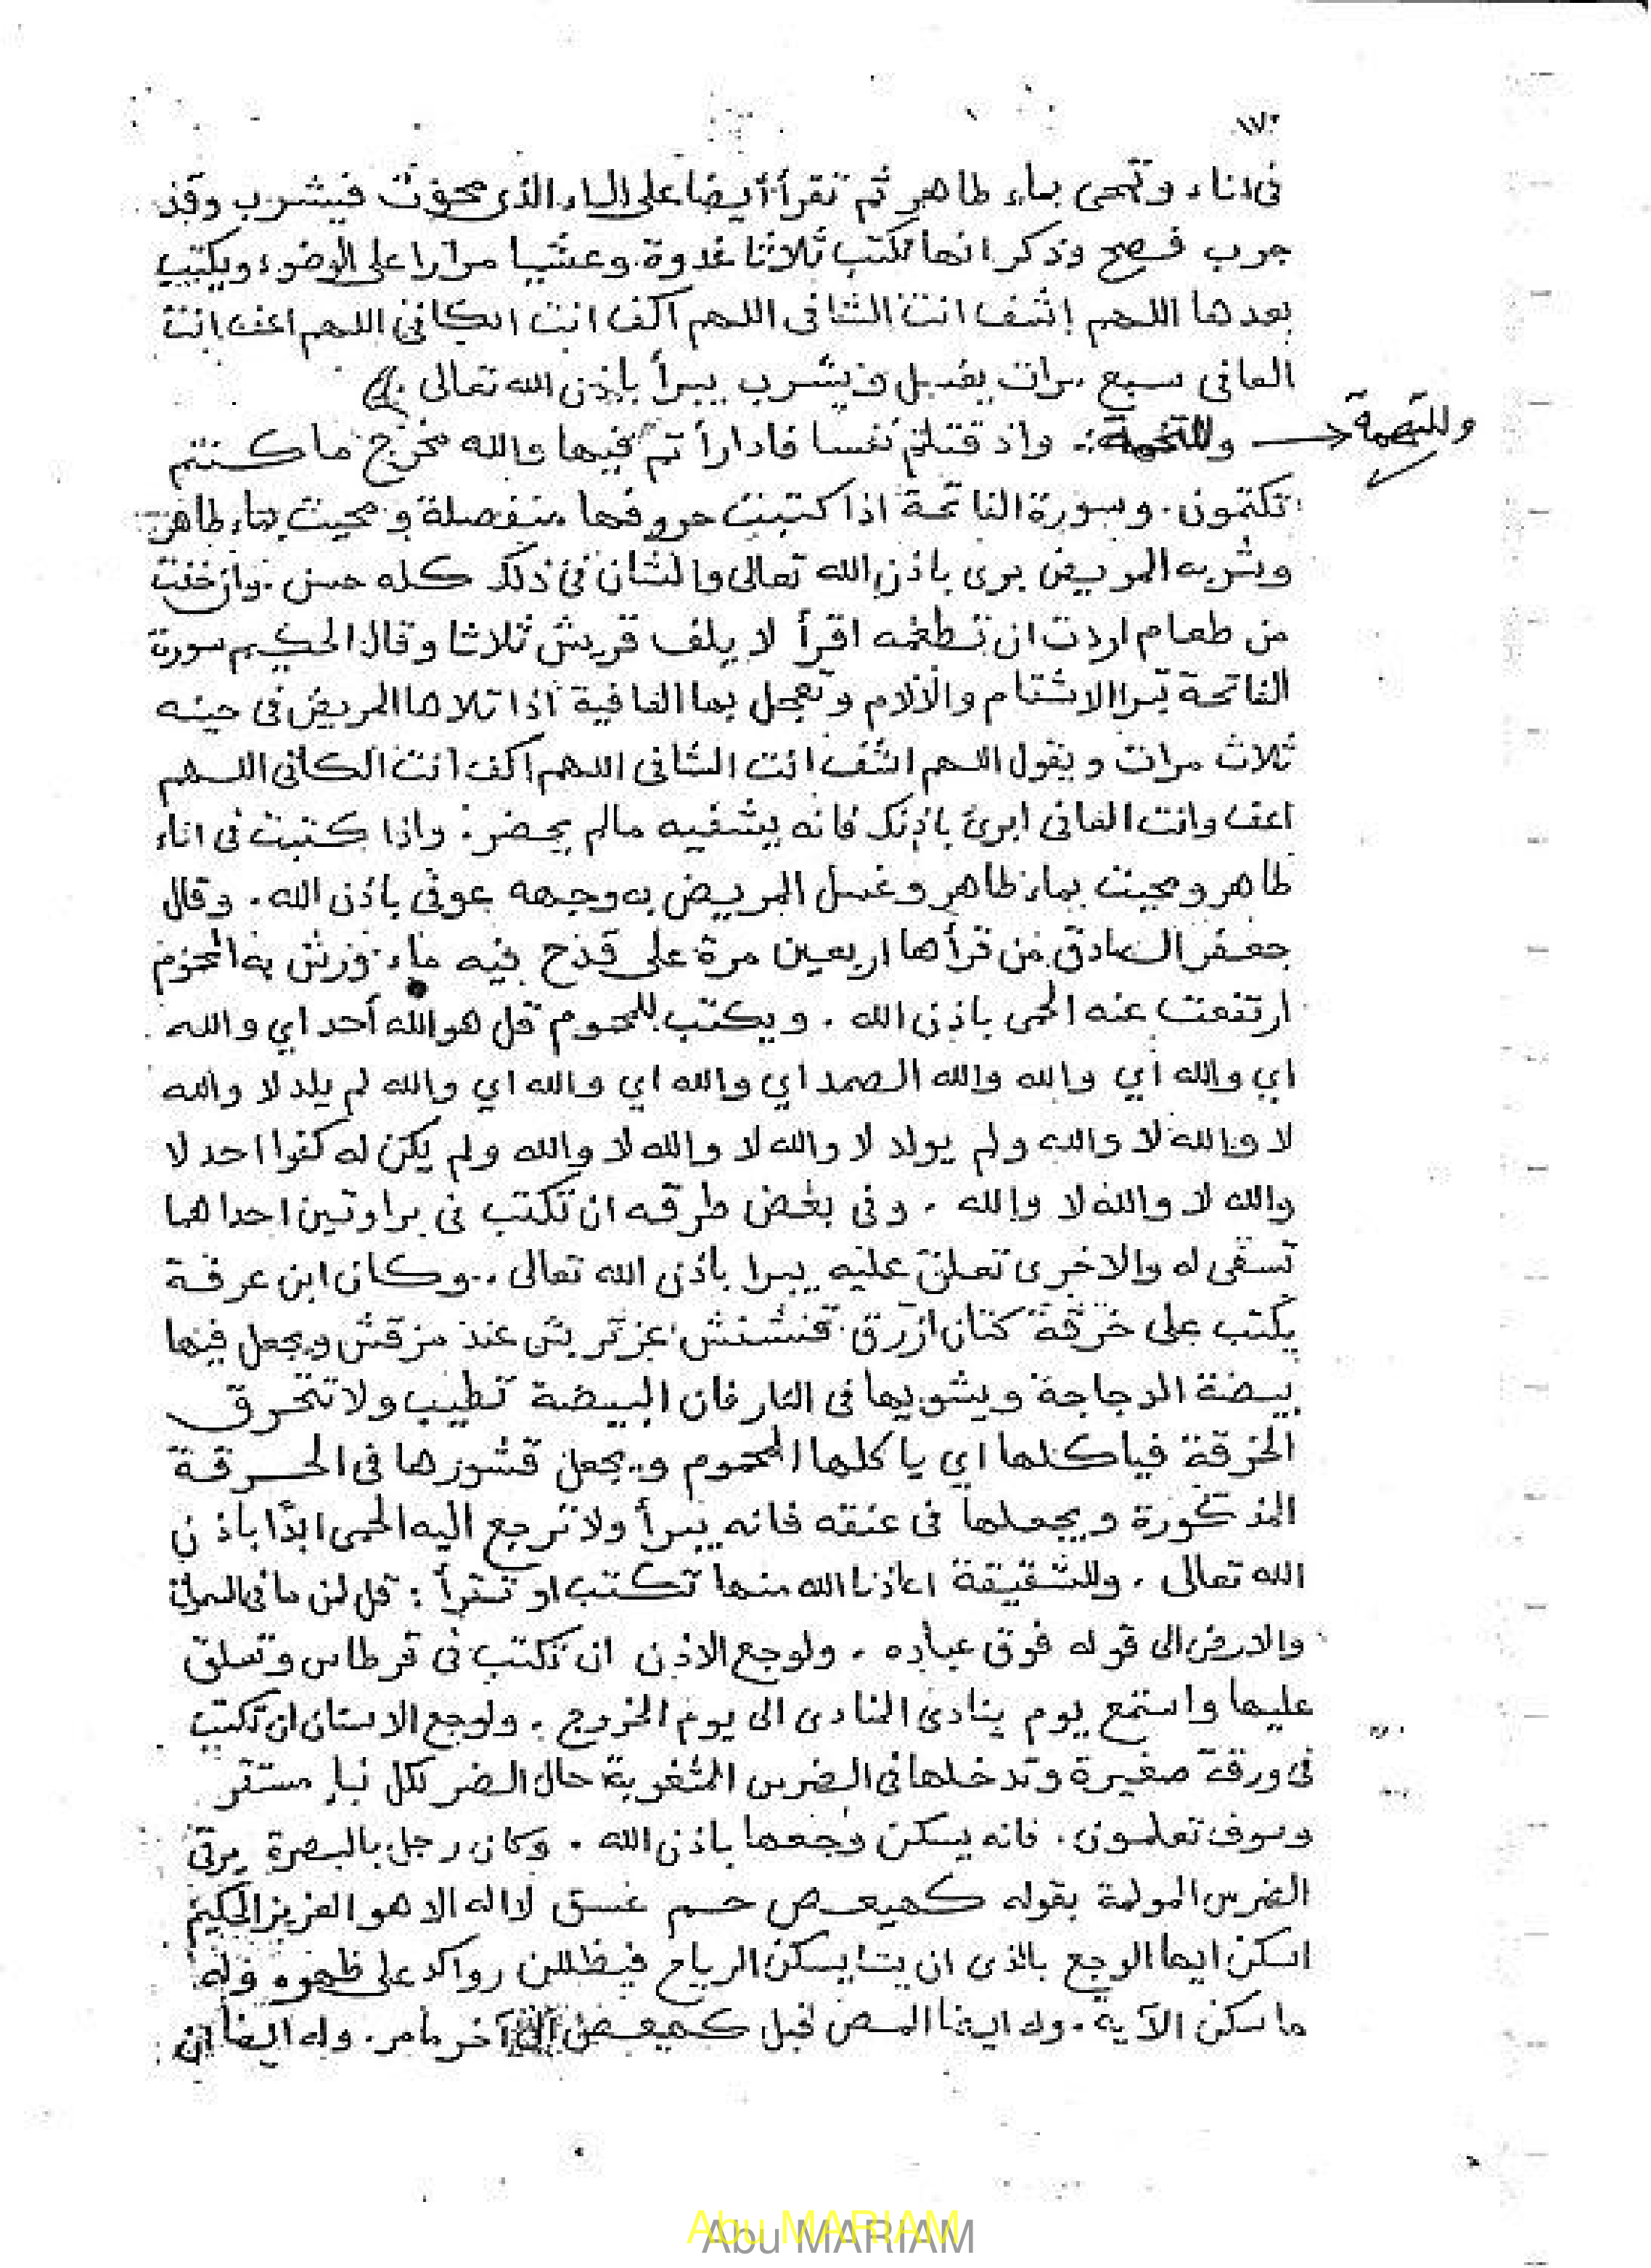 ١٧٠
فى اناء وتمحى بماء طاهر ثم تقرأ أيضا على الماء الذى محوت فيشرب وقد
جرب فصح وذكر انها تكتب ثلاثا غدوة وعشيا مرارا على الوضوء ويكتب
بعدها اللهم إشف انت الشافى اللهم اكف انت الكافى اللهم اعف انت
العافى سبع مرات يغسل ويشرب يبرأ باذن الله تعالى
وللتهمة
وللتخمة: واذ قتلتم نفسا فادارأتم فيها والله مخرج ما كنتم
تكتمون. وسورة الفاتحة اذا كتبت حروفها منفصلة ومحيت بماء طاهر
وشربه المريض برى باذن الله تعالى والشان فى ذلك كله حسن. وان خفت
من طعام اردت ان تطعمه اقرأ لا يلف قريش ثلاثا وقال الحكيم سورة
الفاتحة تبرا الاسقام والآلام وتعجل بها العافية اذا تلاها المريض فى حينه
ثلاث مرات ويقول اللهم اشف انت الشافى اللهم اكف انت الكافى اللهم
اعف وانت العافى ابرئ باذنك فانه يشفيه مالم يحضر. واذا كتبت فى اناء
طاهر ومحيت بماء طاهر وغسل المريض به وجهه عوفى باذن الله. وقال
جعفر الصادق من قرأها اربعين مرة على قدح فيه ماء ورش به المحموم
ارتفعت عنه الحمى باذن الله. ويكتب للمحموم قل هو الله أحد اي والله
اي والله اي والله والله الصمد اي والله اي والله اي والله لم يلد لا والله
لا والله لا والله ولم يولد لا والله لا والله لا والله ولم يكن له كفوا احد لا
والله لا والله لا والله. وفى بعض طرقه ان تكتب فى براوتين احداهما
تسقى له والاخرى تعلق عليه يبرا باذن الله تعالى. وكان ابن عرفة
يكتب على خرقة كتان ازرق عند مرقش ويجعل فيها
بيضة الدجاجة ويشويها فى النار فان البيضة تطيب ولا تحرق
الخرقة فياكلها اي ياكلها المحموم ويجعل قشورها فى الحرقة
المذكورة ويجعلها فى عنقه فانه يبرأ ولا ترجع اليه الحمى ابدًا باذن
الله تعالى. وللشقيقة اعاذنا الله منها تكتب او تقرأ: قل لمن ما فى السموات
والارض الى قوله فوق عباده. ولوجع الاذن ان تكتب فى قرطاس وتعلق
عليها واستمع يوم ينادى المنادى الى يوم الخروج. ولوجع الاسنان ان تكتب
فى ورقة صغيرة وتدخلها فى الضرس المثغوبة حال الضر لكل نبإ مستقر
وسوف تعلمون. فانه يسكن وجعها باذن الله. وكان رجل بالبصرة يرقى
الضرس المولمة بقوله كهيعص حم عسق لا اله الا هو العزيز الحكيم
اسكن ايها الوجع بالذى ان يشا يسكن الرياح فيظللن رواكد على ظهره وله
ما سكن الآية. وله ايضا المص كهيعص الى آخر ما مر. وله ايضا ان
Abu MARIAM